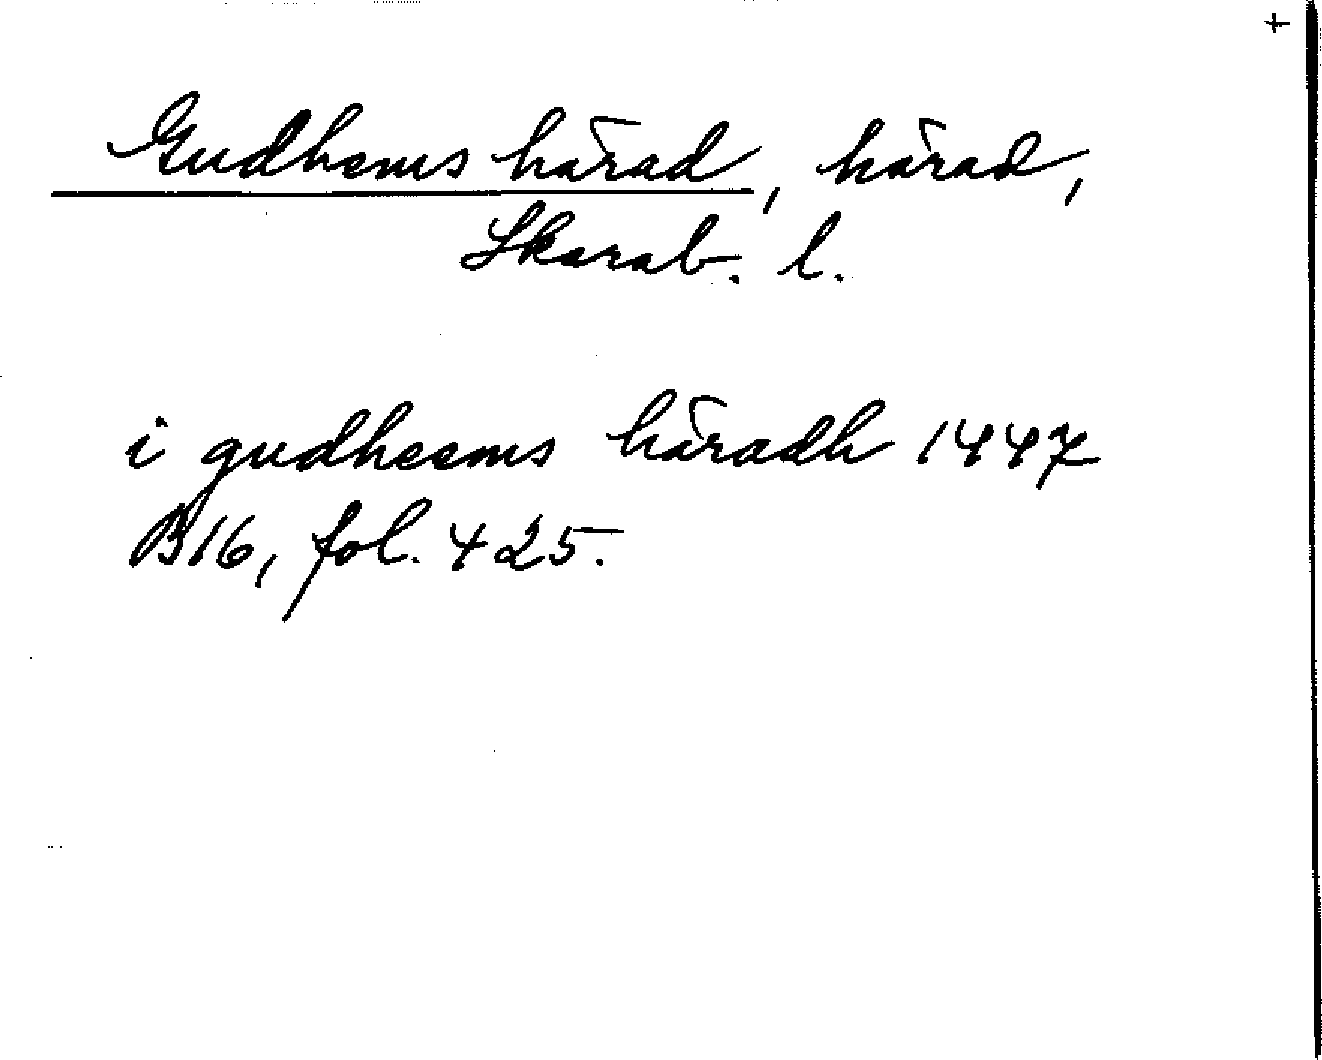 +
Gudhems härad, härad,
Skarab. l.
i gudheems häradh 1447
B16, fol. 425.